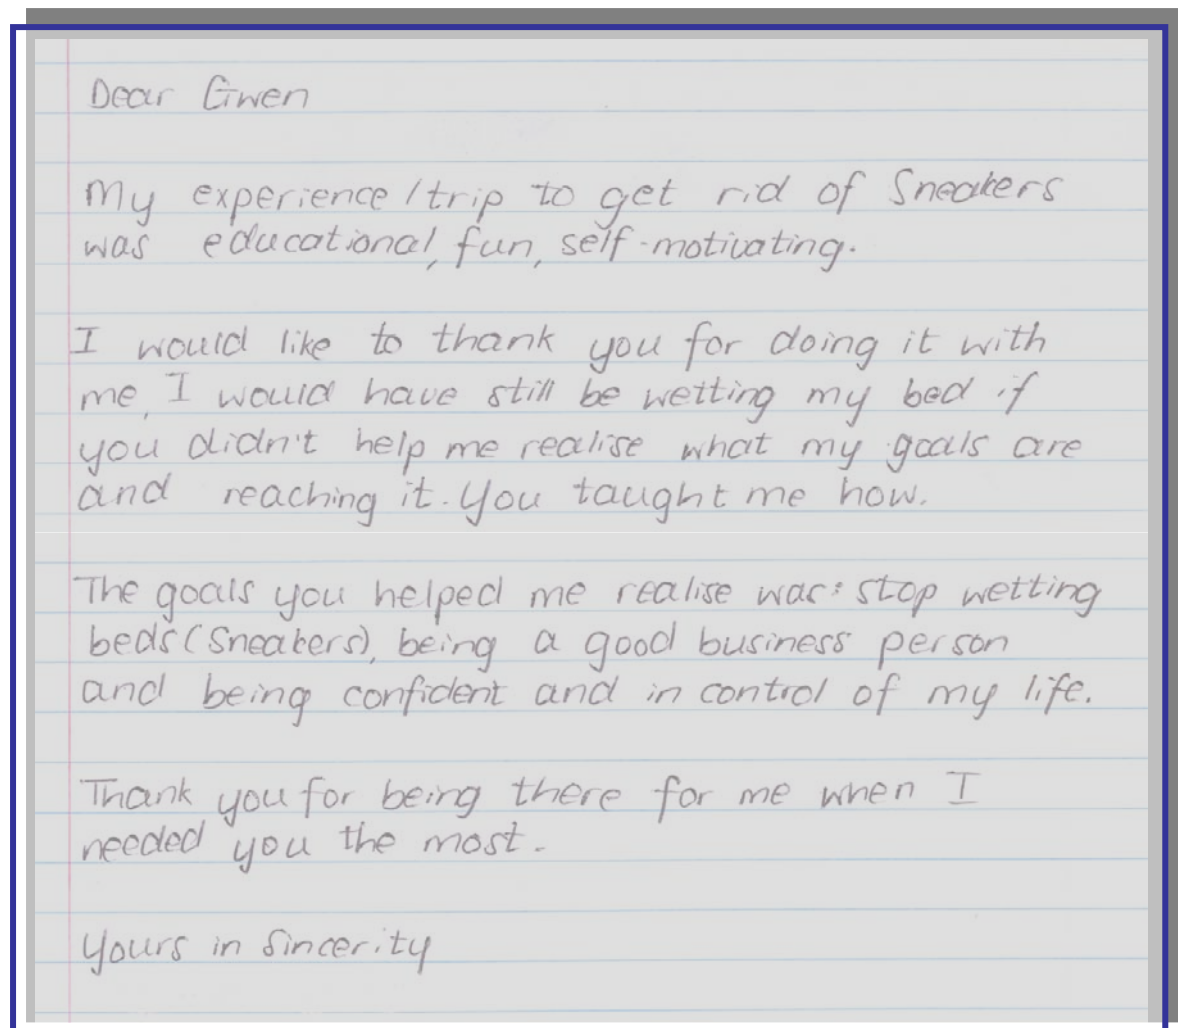 Dear Gwen
My experience/trip to get rid of Sneakers
was educational, fun, self-motivating.
I would like to thank you for doing it with
me, I would have still be wetting my bed if
you didn't help me realise what my goals are
and reaching it. You taught me how.
The goals you helped me realise was: stop wetting
beds (Sneakers), being a good business person
and being confident and in control of my life.
Thank you for being there for me when I
needed you the most.
Yours in Sincerity